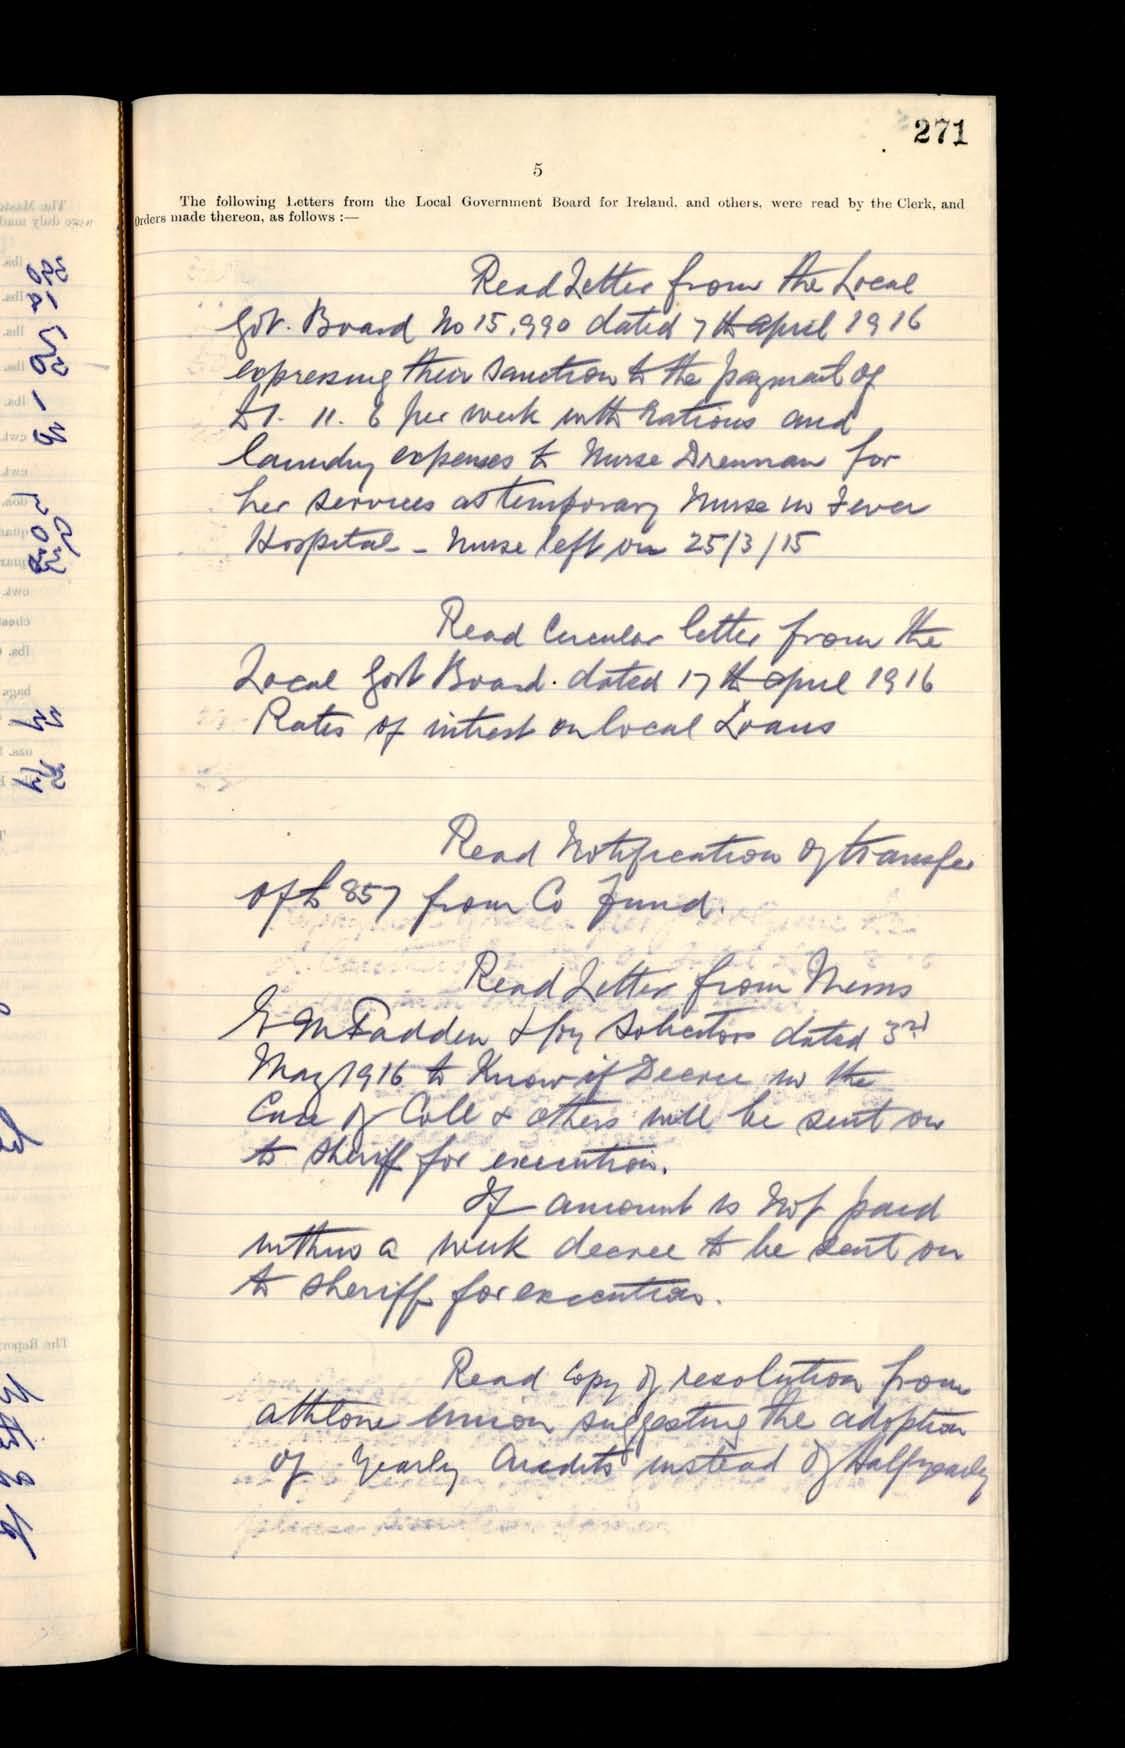 271
5
The following Letters from the Local Government Board for Ireland, and others, were read by the Clerk, and
Orders made thereon, as follows :—
Read Letter from the Local
Govt. Board No 15.990 dated 7th april 1916
expressing their sanction to the payment of
£1. 11. 6 per week with rations and
laundry expenses to Nurse Drennan for
her services as temporary Nurse in Fever
Hospital - Nurse left on 25/3/15
Read Circular letter from the
Local Govt Board. dated 17th april 1916
Rates of intrest on local Loans
Read Notification of transfer
of £857 from Co Fund.
Read Letter from Messrs
McFadden & solicitors dated 3rd
May 1916 to Know if Decree in the
Case of Coll & others will be sent on
to Sheriff for execution.
If amount is not paid
within a week decree to be sent on
to Sheriff for execution.
Read copy of resolution from
athlone union suggesting the adoption
of Yearly Audits instead of Halfyearly